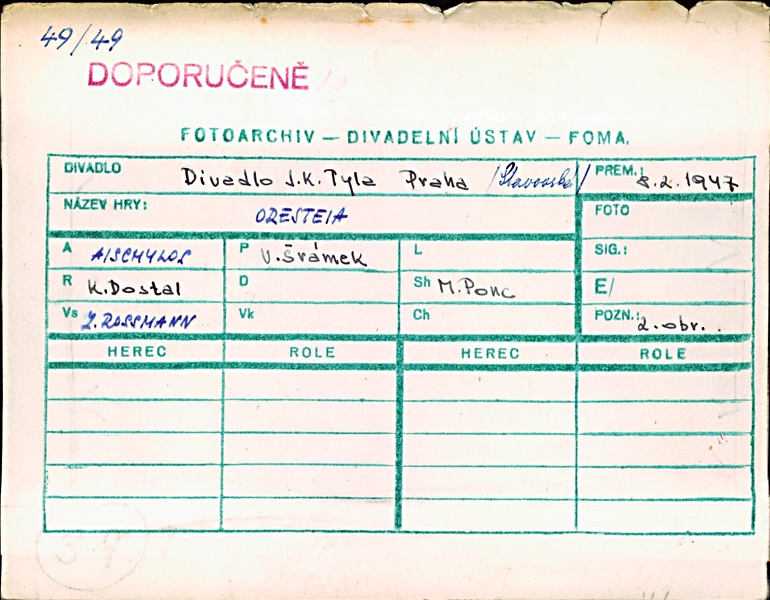 49/49
DOPORUČENĚ
FOTOARCHIV — DIVADELNÍ ÚSTAV — FOMA.
DIVADLO Divadlo J.K. Tyla Praha /Stavovské/ PREM.: 8.2.1947
NÁZEV HRY: ORESTEIA FOTO
A AISCHYLOS P V. Šrámek L SIG.:
R K. Dostal D Sh M. Ponc E/
Vs Z. ROSSMANN Vk Ch POZN.: 2. obr.
HEREC ROLE HEREC ROLE
39